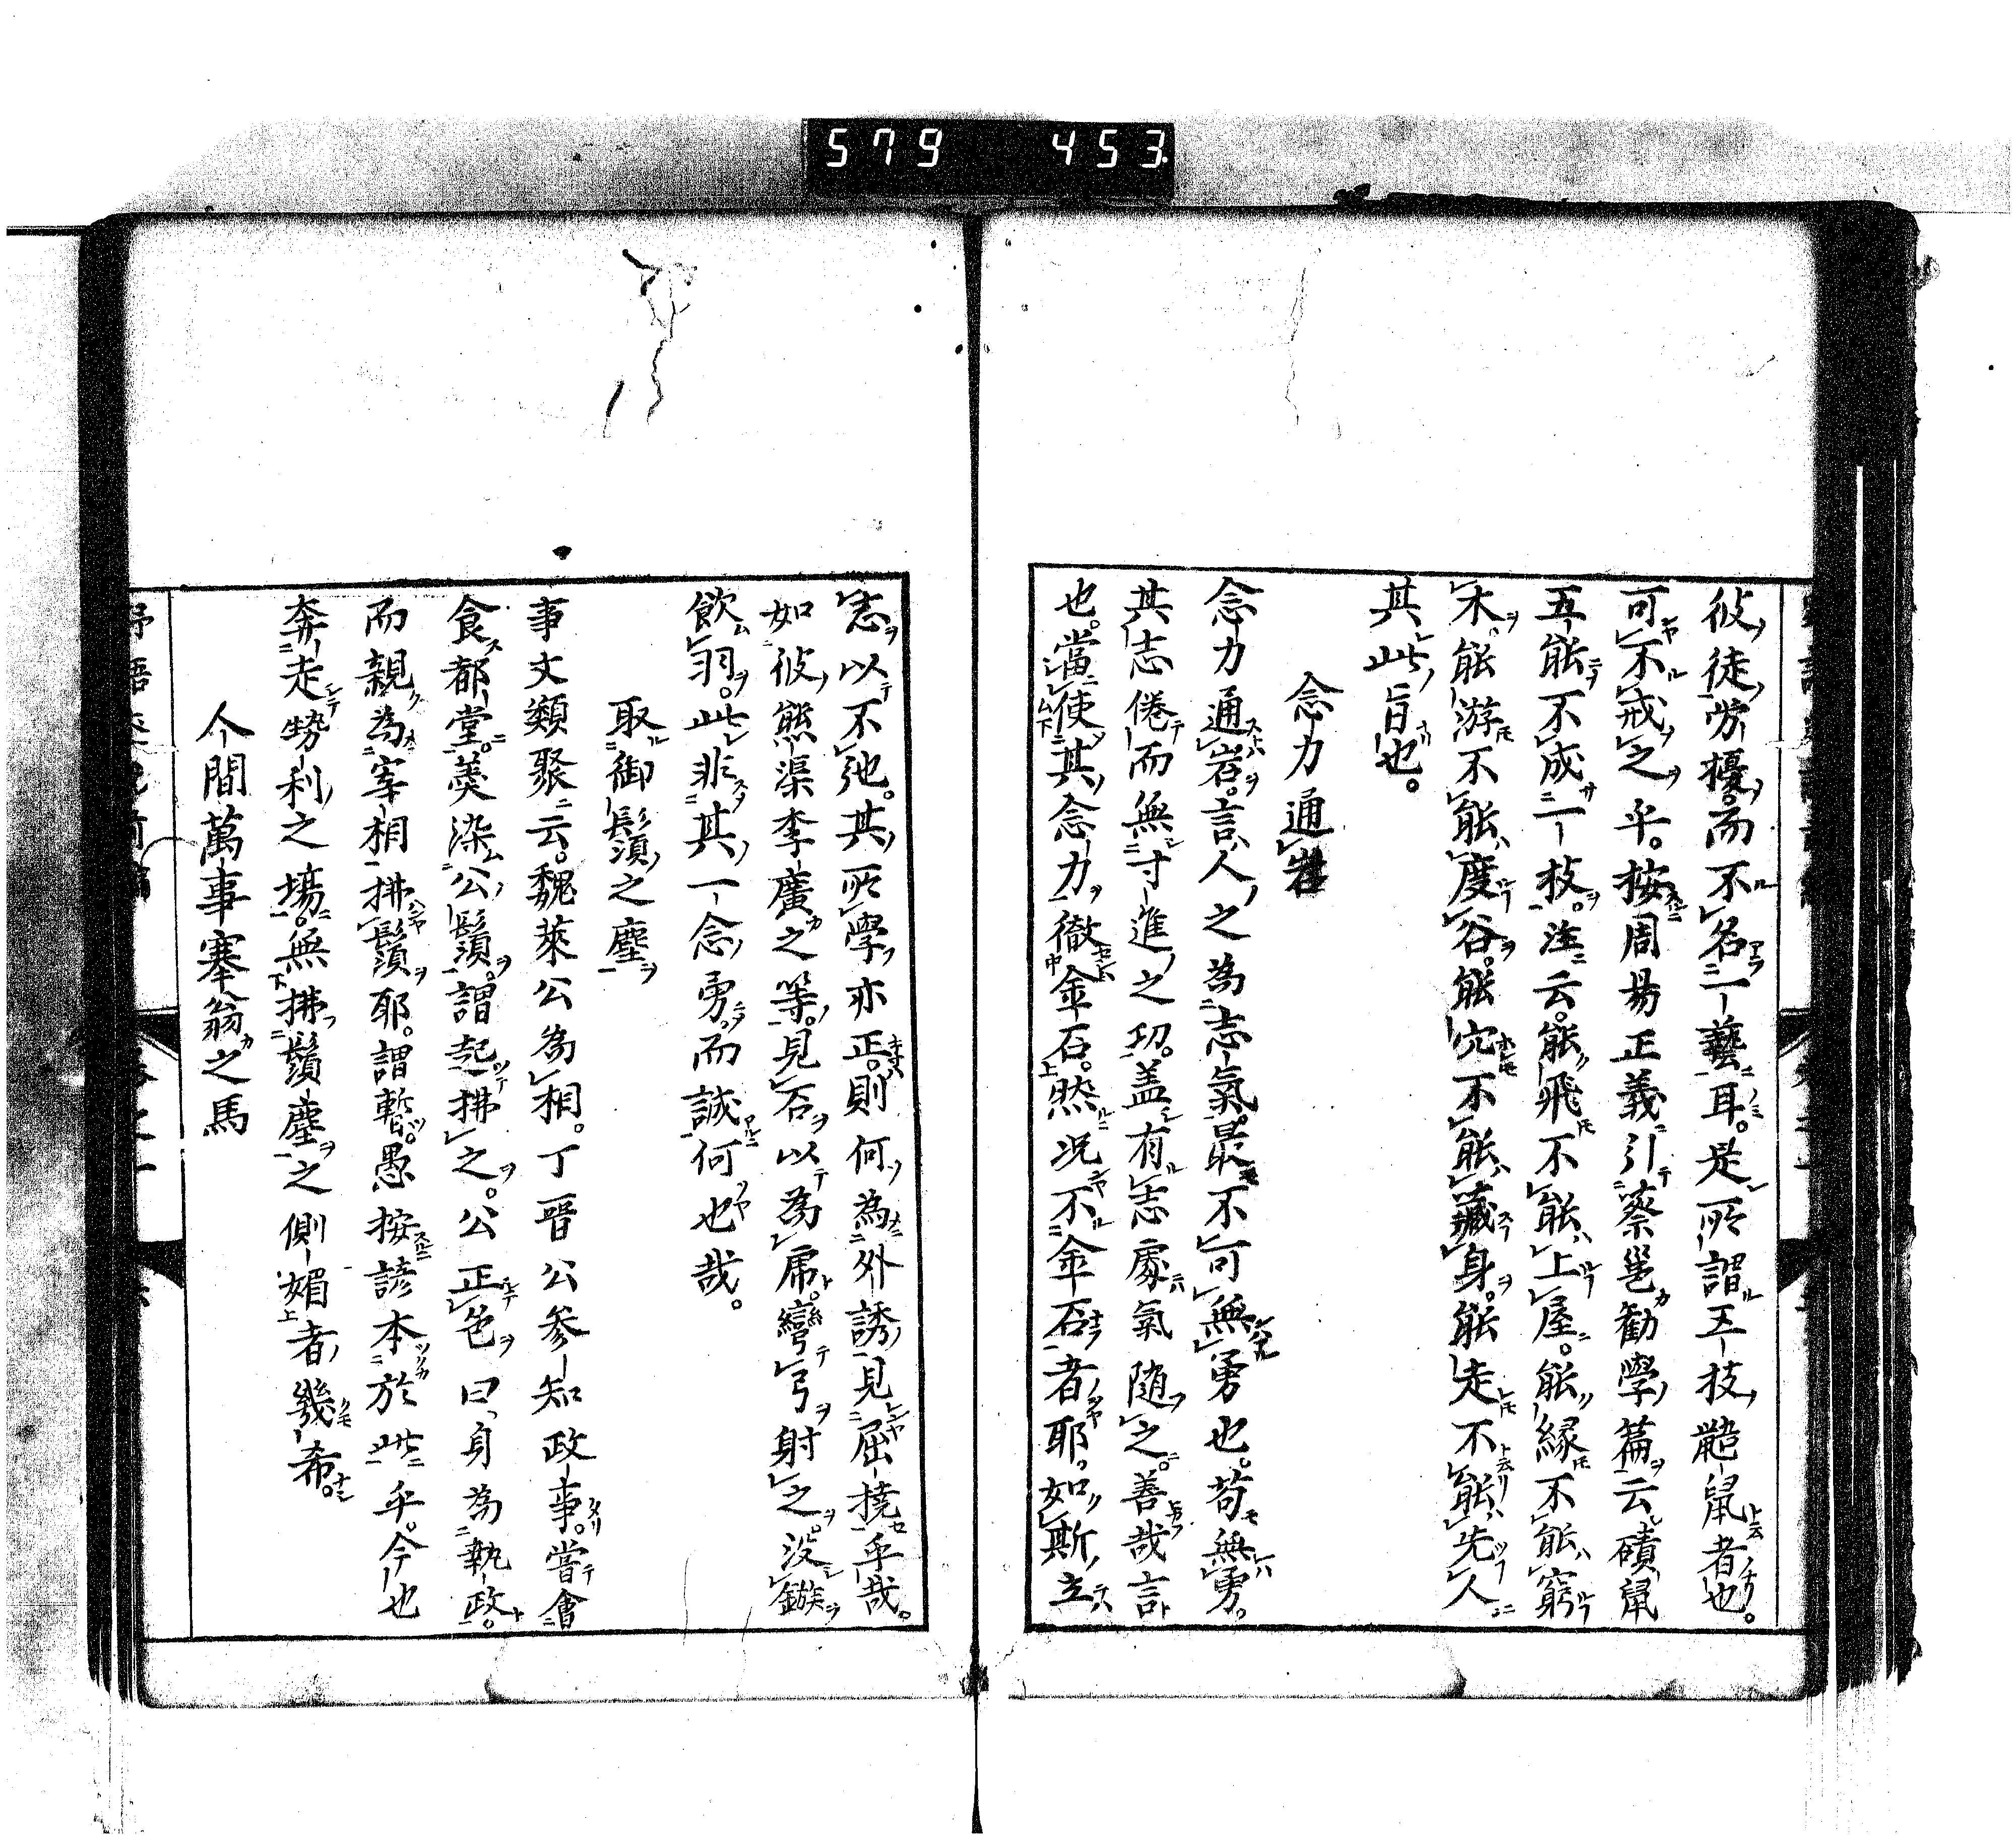 579 453.
彼徒労擾而不名一藝耳。是所謂五技鼯鼠者也。
可不戒之乎。按周易正義引蔡邕勧學篇云碩鼠
五能不成一技。注云。能飛不能上屋。能縁不能窮
木。能游不能度谷。能穴不能藏身。能走不能先人
其此旨也。
念力通岩
念力通岩。言人之為志氣最不可無勇也。苟無勇。
其志倦而無寸進之功。盖有志處氣随之。善哉言
也。當使其念力徹金石。然況不金石者耶。如斯立
志以不弛。其所學亦正。則何為外誘見屈撓乎哉。
如彼熊渠李廣之等。見石以為虎。彎弓射之。没鏃
飲羽。此非其一念勇。而誠何也哉。
取御鬚之塵
事文類聚云。魏萊公為相。丁晋公参知政事。嘗會
食都堂。羹染公鬚。謂起拂之。公正色曰身為執政。
而親為宰相拂鬚耶。謂慙。愚按諺本於此乎。今也
奔走勢利之場。無拂鬚塵之側媚者幾希。
人間萬事塞翁之馬